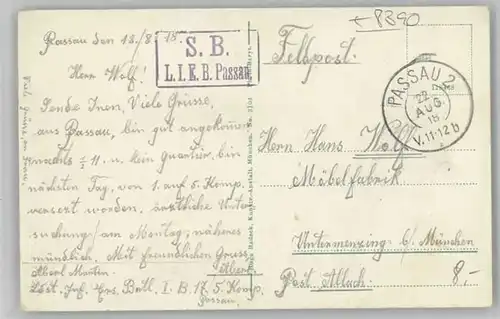 Passau den 18/8. 18.
S. B.
L.I.E.B. Passau.
← P390
Feldpost.
PASSAU 2
22
AUG.
18
V. 11-12 b
Herr Wolf!
Sende Inen, Viele Grüsse,
aus Passau, bin gut angekome,
nachts ½ 11 u. kein Quartier, bin
nächsten Tag, von 1. auf 5. Komp.
versezt worden, ärztliche Unter
suchung am Montag, näheres
mündlich. Mit freundlichen Gruss
Albert Martin.
Ldst. Inf. Ers. Batl. I. B. 17. 5. Komp.
Passau.
Herrn Hans Wolf
Möbelfabrik
Untermenzing b/ München
Post Allach.
8.-